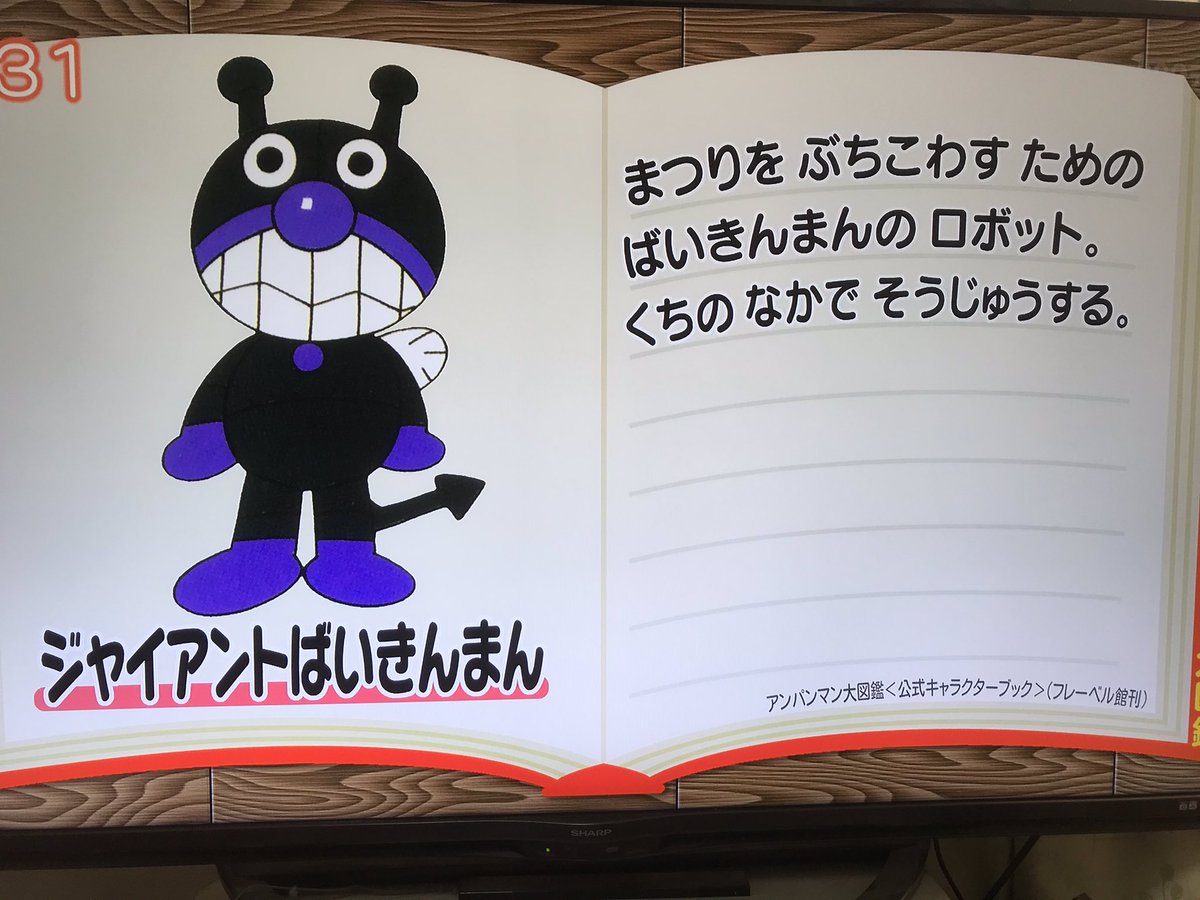 31
まつりを ぶちこわす ための
ばいきんまんの ロボット。
くちの なかで そうじゅうする。
ジャイアントばいきんまん
アンパンマン大図鑑<公式キャラクターブック>(フレーベル館刊)
SHARP